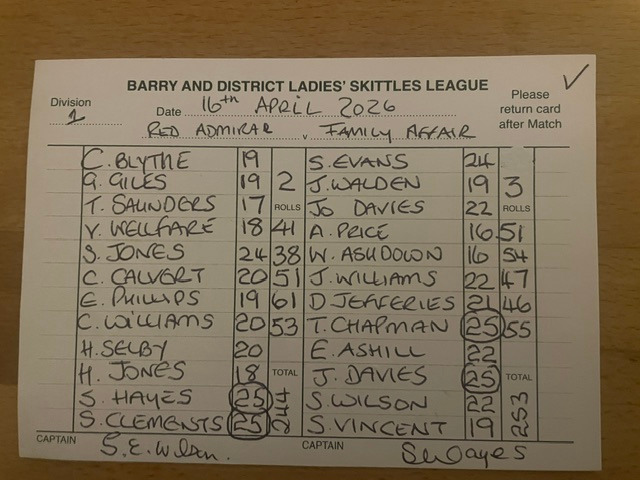 BARRY AND DISTRICT LADIES' SKITTLES LEAGUE
Division 1 Date 16th APRIL 2026 Please return card after Match
RED ADMIRAL v FAMILY AFFAIR
C. BLYTHE 19 S. EVANS 24
G. GILES 19 2 J. WALDEN 19 3
T. SAUNDERS 17 ROLLS JO DAVIES 22 ROLLS
V. WELLFARE 18 41 A. PRICE 16 51
S. JONES 24 38 W. ASHDOWN 16 54
C. CALVERT 20 51 J. WILLIAMS 22 47
E. PHILLIPS 19 61 D JEFFERIES 21 46
C. WILLIAMS 20 53 T. CHAPMAN 25 55
H. SELBY 20 E. ASHILL 22
H. JONES 18 TOTAL J. DAVIES 25 TOTAL
S. HAYES 25 244 S. WILSON 22 253
S. CLEMENTS 25 S. VINCENT 19
CAPTAIN S. E. Wilson. CAPTAIN S Hayes